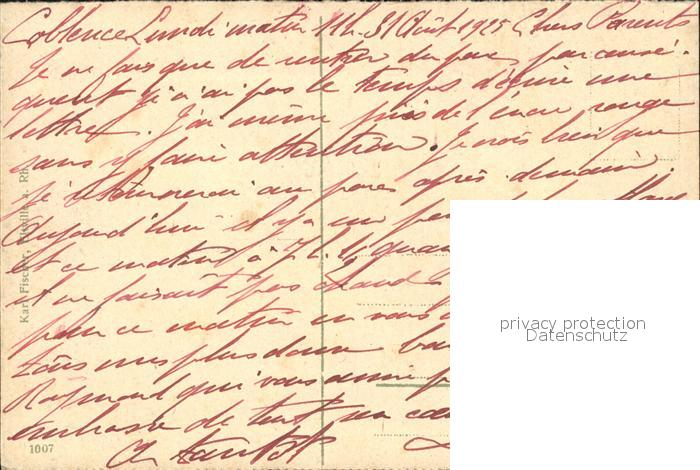 Coblence Lundi matin 11h. 31 Août 1925 Chers Parents
Je ne fais que de rentrer du parc par consé-
quent je n'ai pas le temps d'écrire une
lettre. J'ai même pris de l'encre rouge
sans y faire attention. Je crois bien que
je retournerai au parc après demain.
Aujourd'hui il y a un peu
et ce matin à 7 h. 1/4 quan
il ne faisait pas chaud
peu ce matin en vous
tous mes plus doux bai
Raymond qui vous aime p
embrasse de tout son cœu
A tantôt
Karl Fischer, a. Rh.
1007
privacy protection
Datenschutz